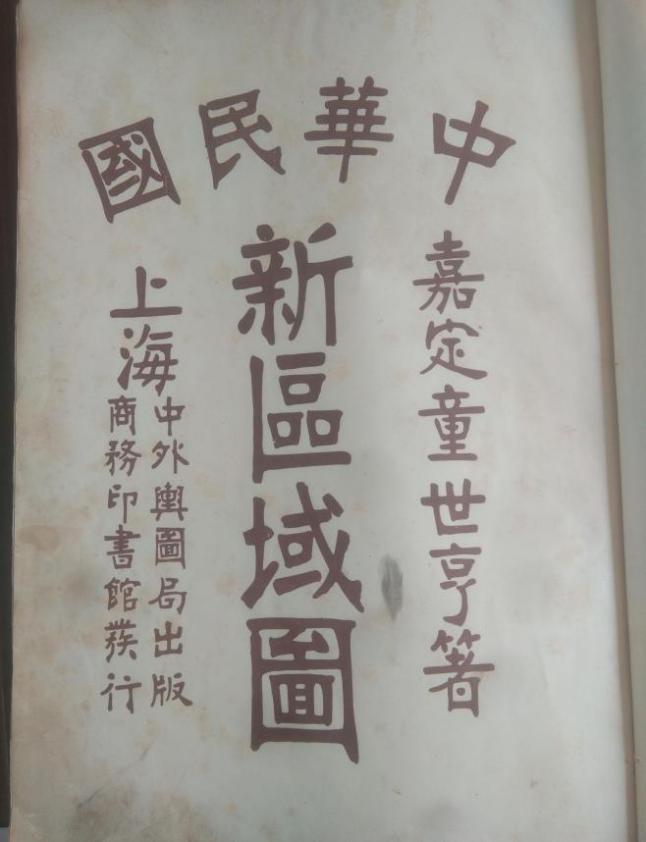 中華民國
嘉定童世亨著
新區域圖
上海
中外輿圖局出版
商務印書館發行